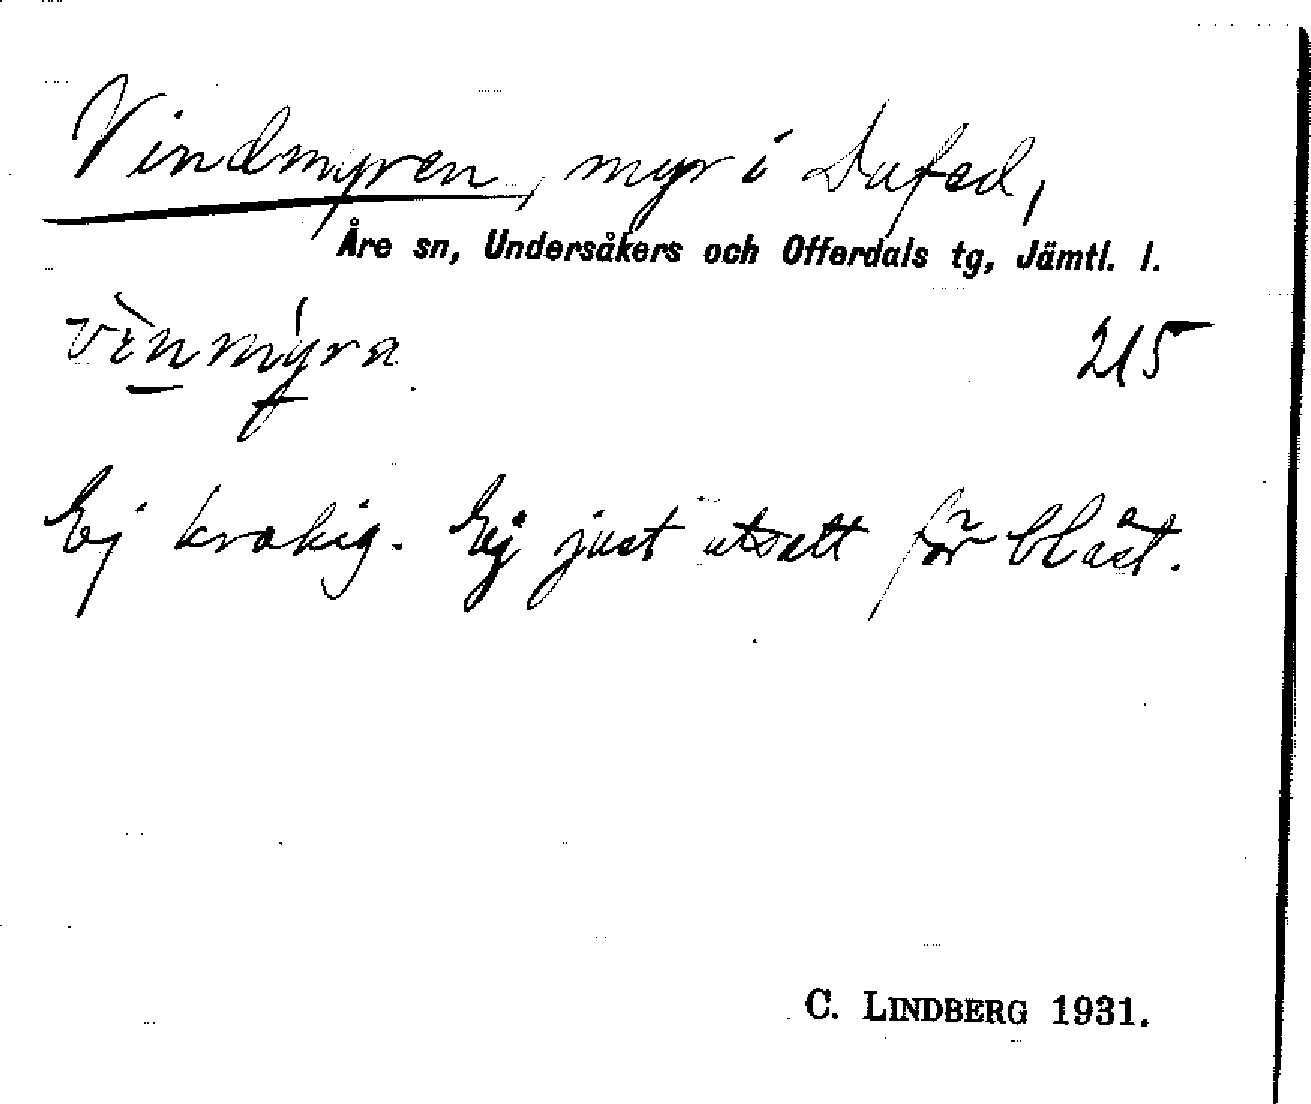 Vindmyren, myr i Dufed,
Åre sn, Undersåkers och Offerdals tg, Jämtl. l.
vìnmýra 215
Ej krokig. Ej just utsatt för blåst.
C. LINDBERG 1931.